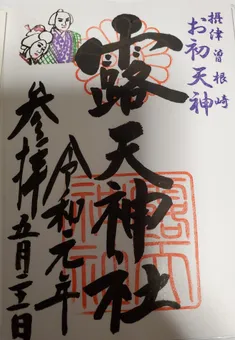 摂津曽根崎
お初天神
露天神社
令和元年
五月三日
参拝